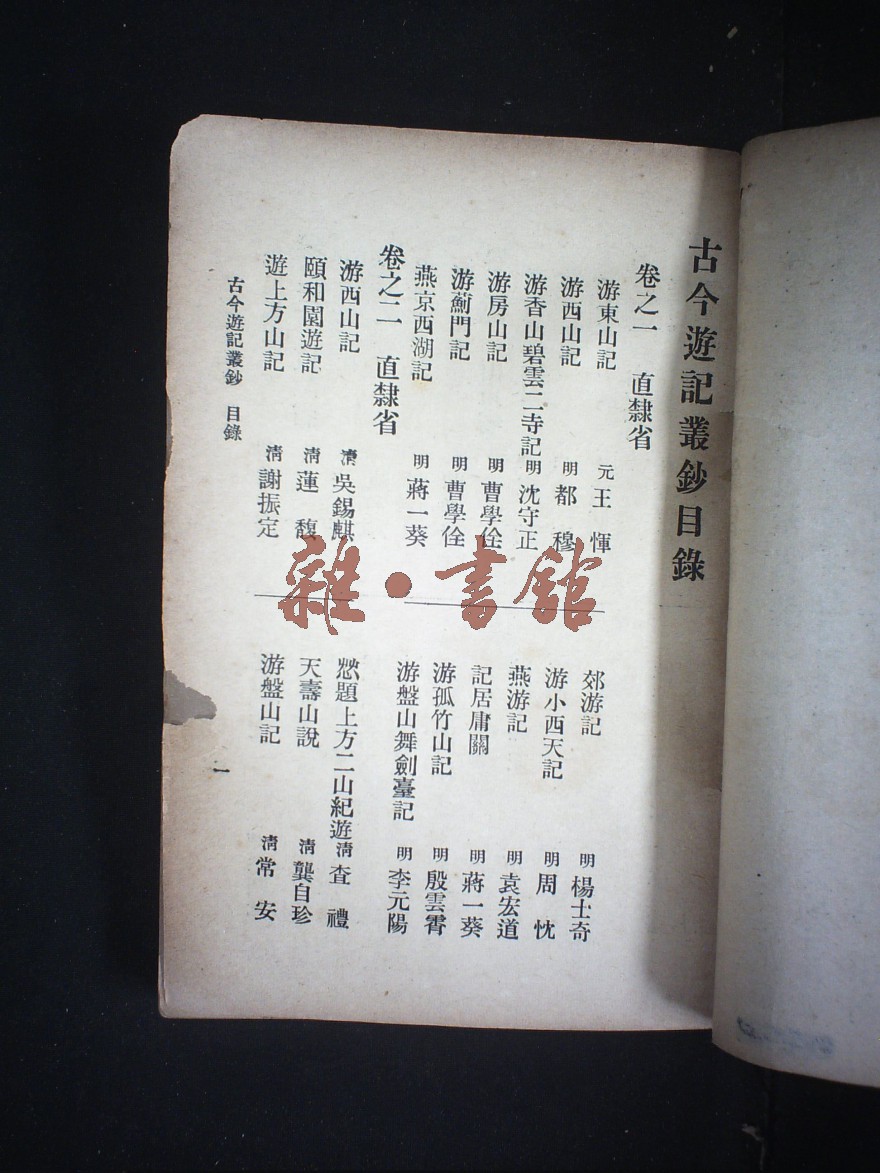 古今遊記叢鈔目錄
卷之一　直隸省
游東山記　元　王惲
游西山記　明　都穆
游香山碧雲二寺記　明　沈守正
游房山記　明　曹學佺
游薊門記　明　曹學佺
燕京西湖記　明　蔣一葵
郊游記　明　楊士奇
游小西天記　明　周忱
燕游記　明　袁宏道
記居庸關　明　蔣一葵
游孤竹山記　明　殷雲霄
游盤山舞劍臺記　明　李元陽
卷之二　直隸省
游西山記　清　吳錫麒
頤和園遊記　清　蓮馥
遊上方山記　清　謝振定
題上方二山紀遊　清　查禮
天壽山說　清　龔自珍
游盤山記　清　常安
古今遊記叢鈔　目錄
一
雜·書館